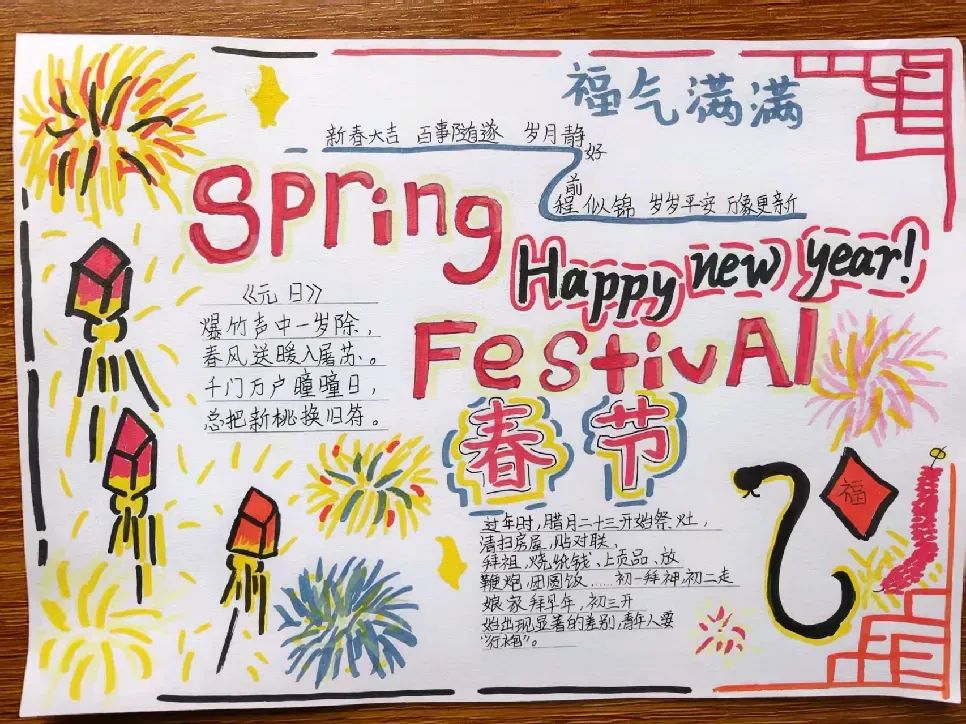 福气满满
新春大吉 百事随遂 岁月静好
前程似锦 岁岁平安 万像更新
Spring
Happy new year!
FestivAl
《元日》
爆竹声中一岁除，
春风送暖入屠苏。
千门万户曈曈日，
总把新桃换旧符。
春节
福
过年时，腊月二十三开始祭灶，
清扫房屋，贴对联、
拜祖，烧纸钱、上贡品、放
鞭炮，团圆饭……初一拜神，初二走
娘家拜早年，初三开
始出现显著的差别，青年人要